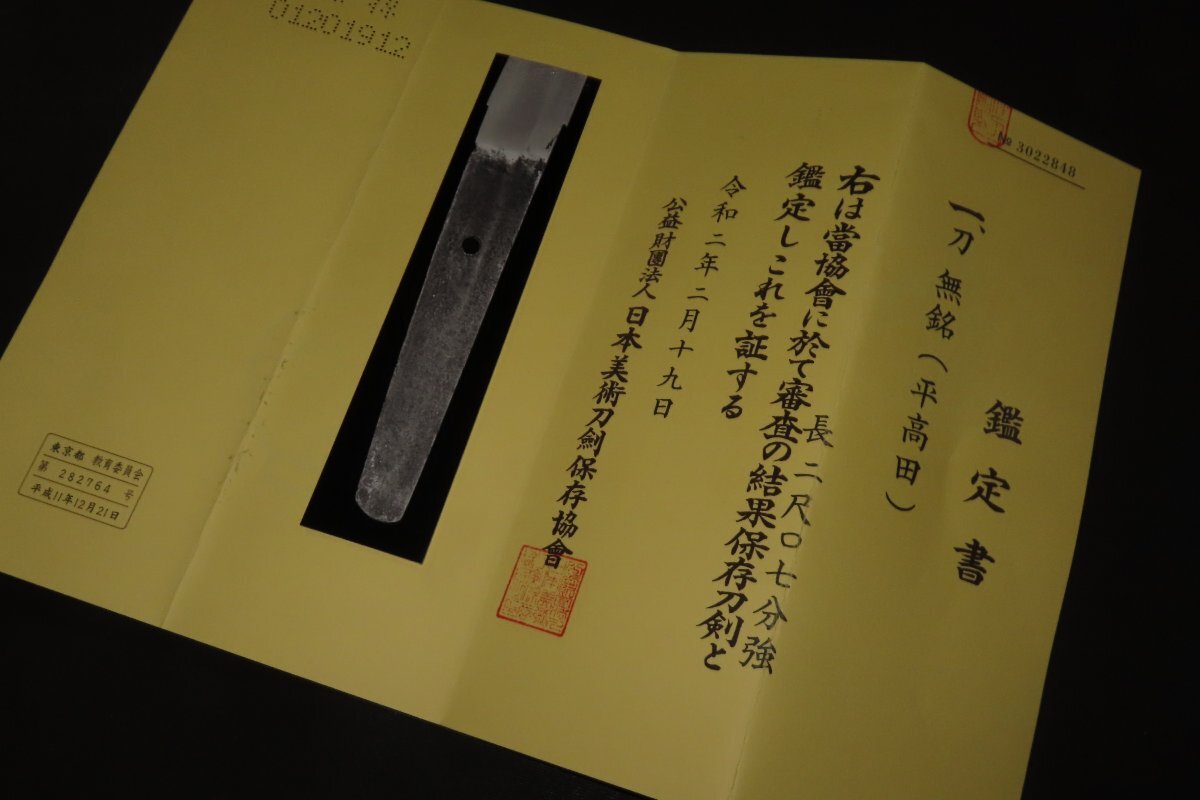 № 3022848
鑑定書
一、刀 無銘（平高田）
長 二尺〇七分強
右は當協會に於て審査の結果保存刀剣と
鑑定しこれを証する
令和二年二月十九日
公益財團法人 日本美術刀劍保存協會
01201912
東京都 教育委員会
第 282764 号
平成11年12月21日